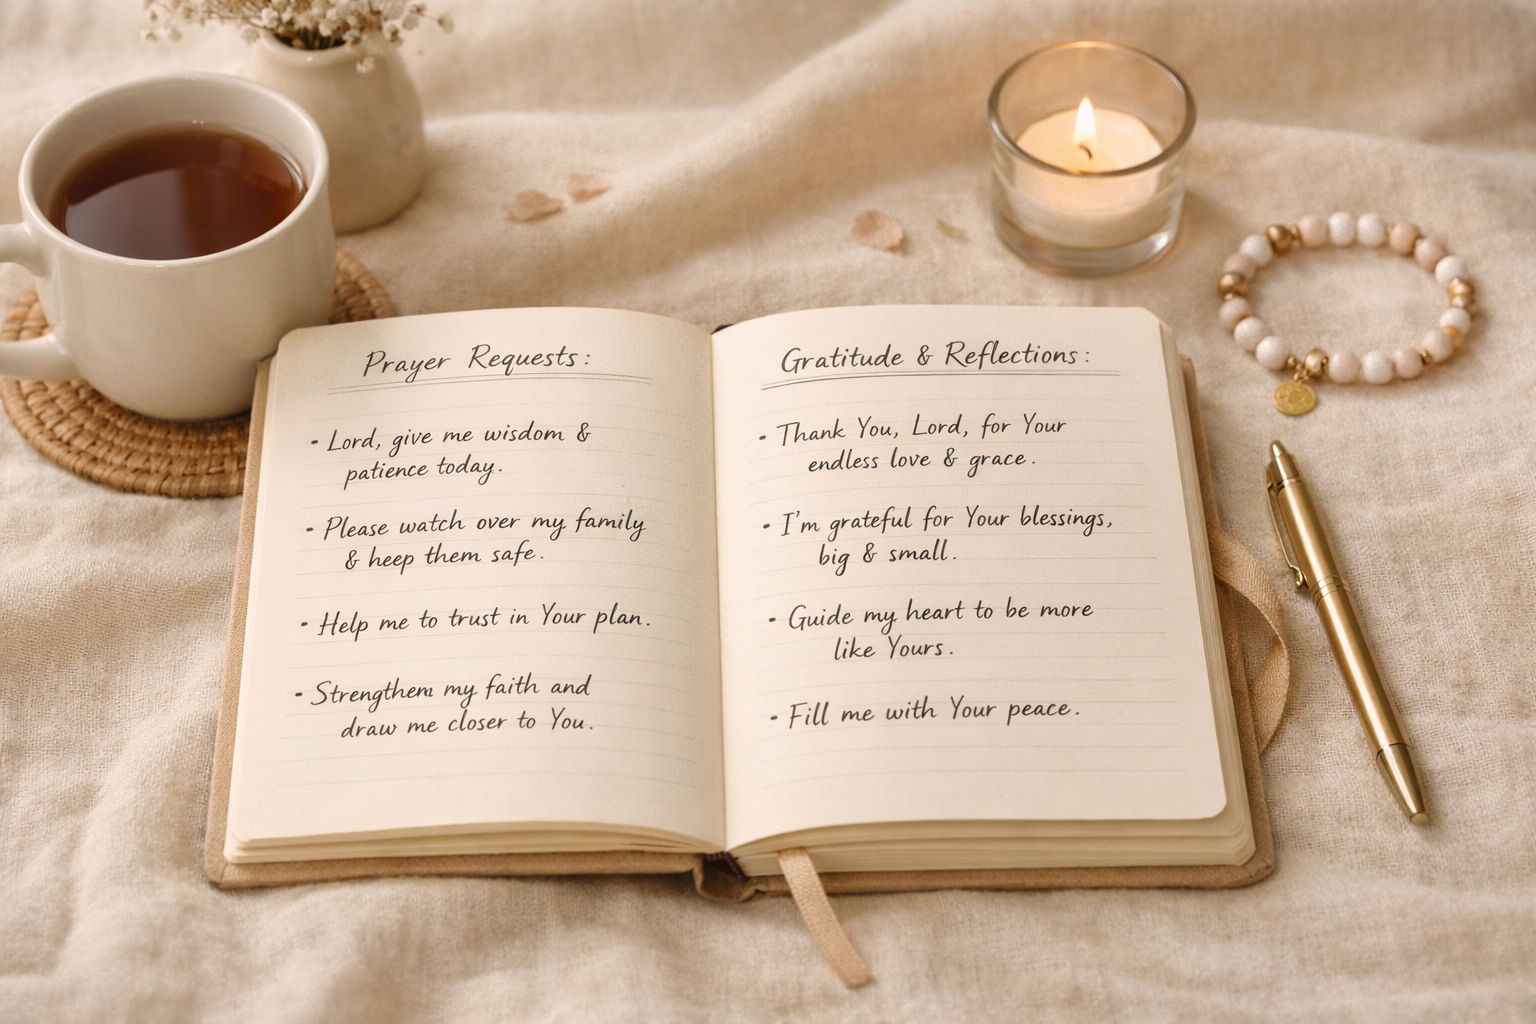 Prayer Requests:
• Lord, give me wisdom &
patience today.
• Please watch over my family
& keep them safe.
• Help me to trust in Your plan.
• Strengthen my faith and
draw me closer to You.
Gratitude & Reflections:
• Thank You, Lord, for Your
endless love & grace.
• I'm grateful for Your blessings,
big & small.
• Guide my heart to be more
like Yours.
• Fill me with Your peace.